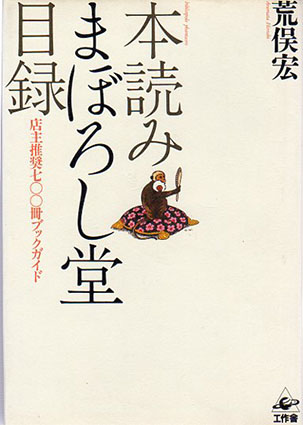 荒俣宏
本読み
まぼろし堂
目録
店主推奨七〇〇冊ブックガイド
工作舎